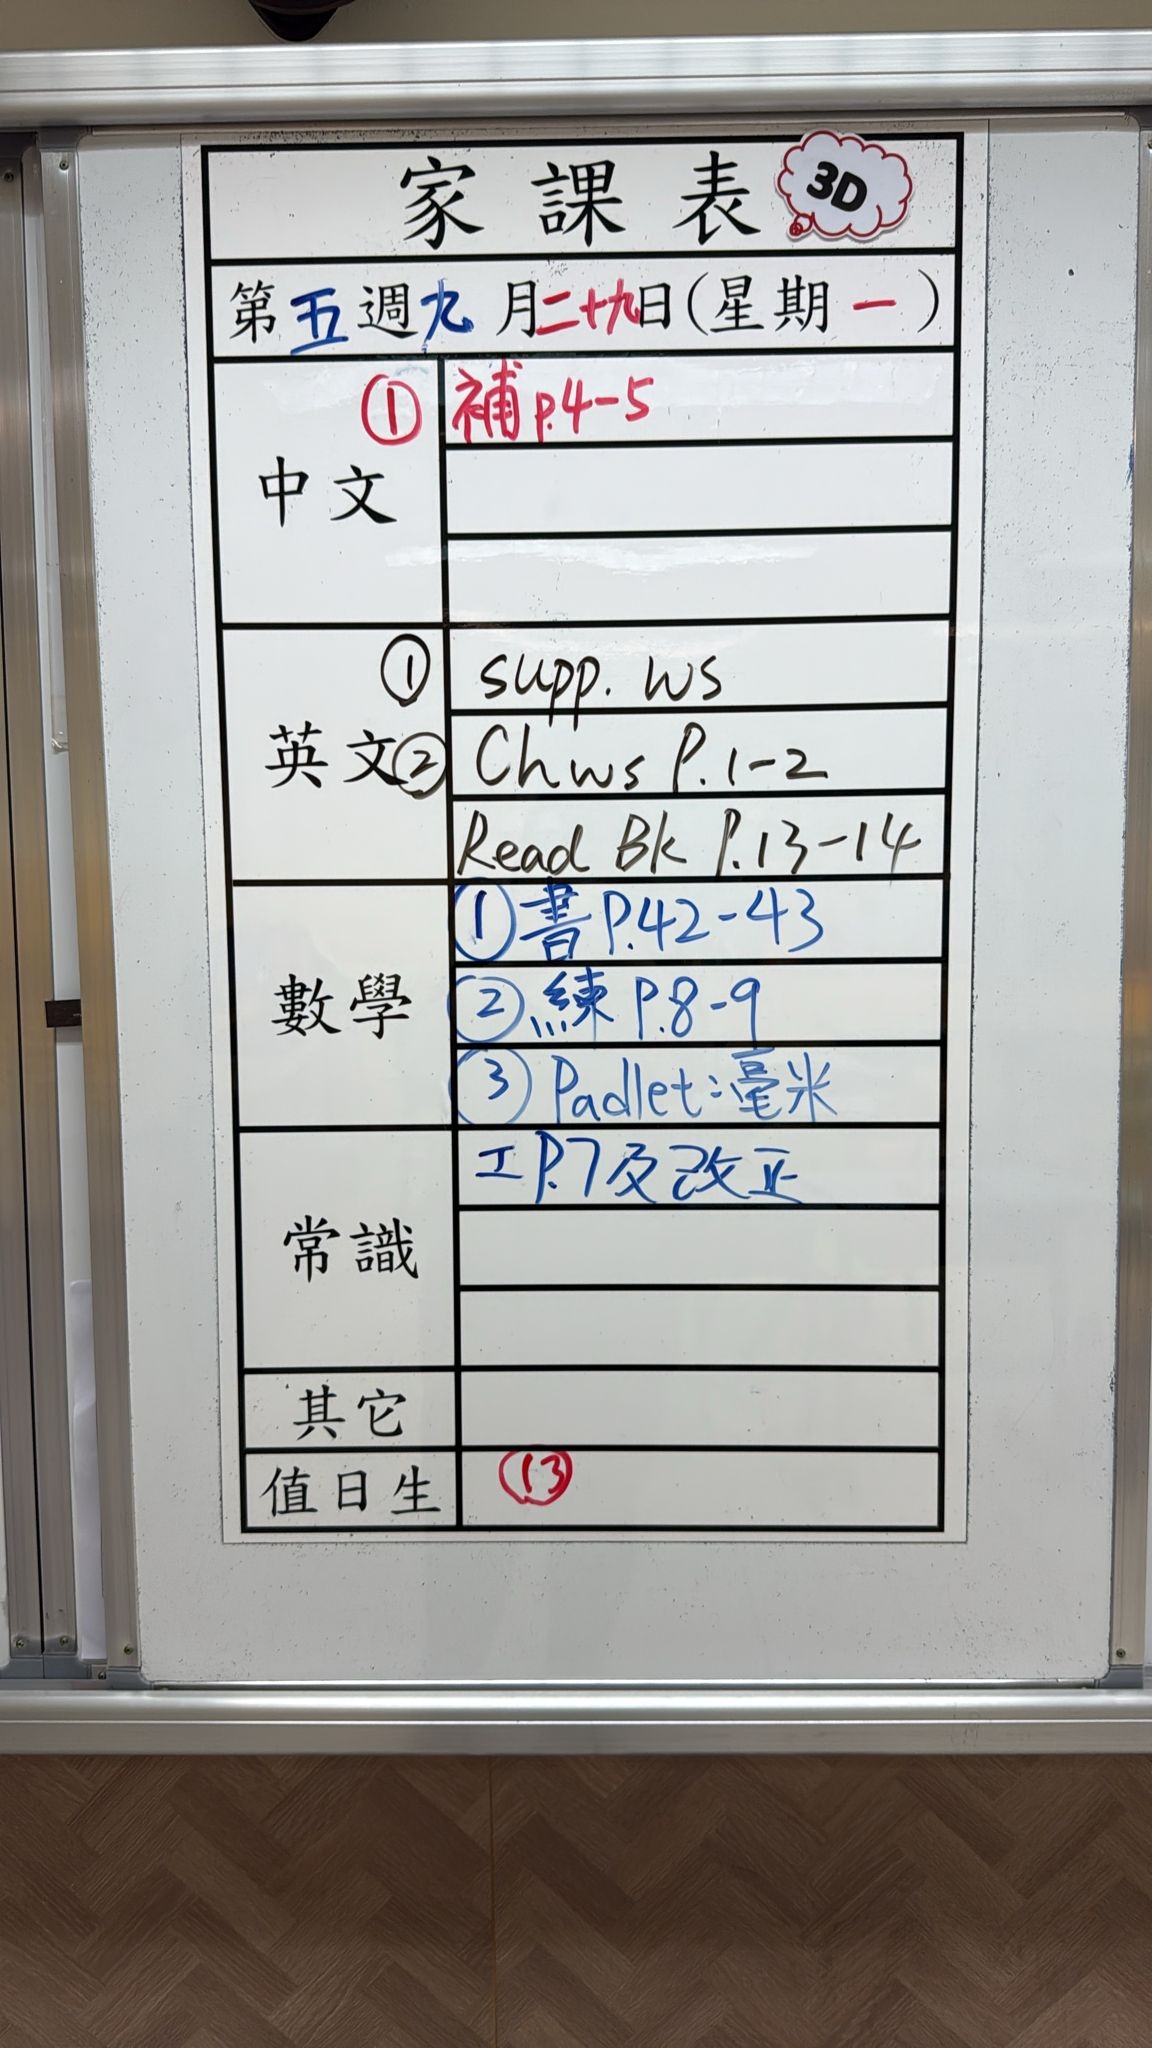 家課表 3D
第五週九月二十九日(星期一)
中文 ① 補 p.4-5
英文 ① supp. ws
② Ch ws P.1-2
Read Bk P.13-14
數學 ① 書 P.42-43
② 練 P.8-9
③ Padlet:毫米
常識 工 P.7及改正
其它
值日生 ⑬